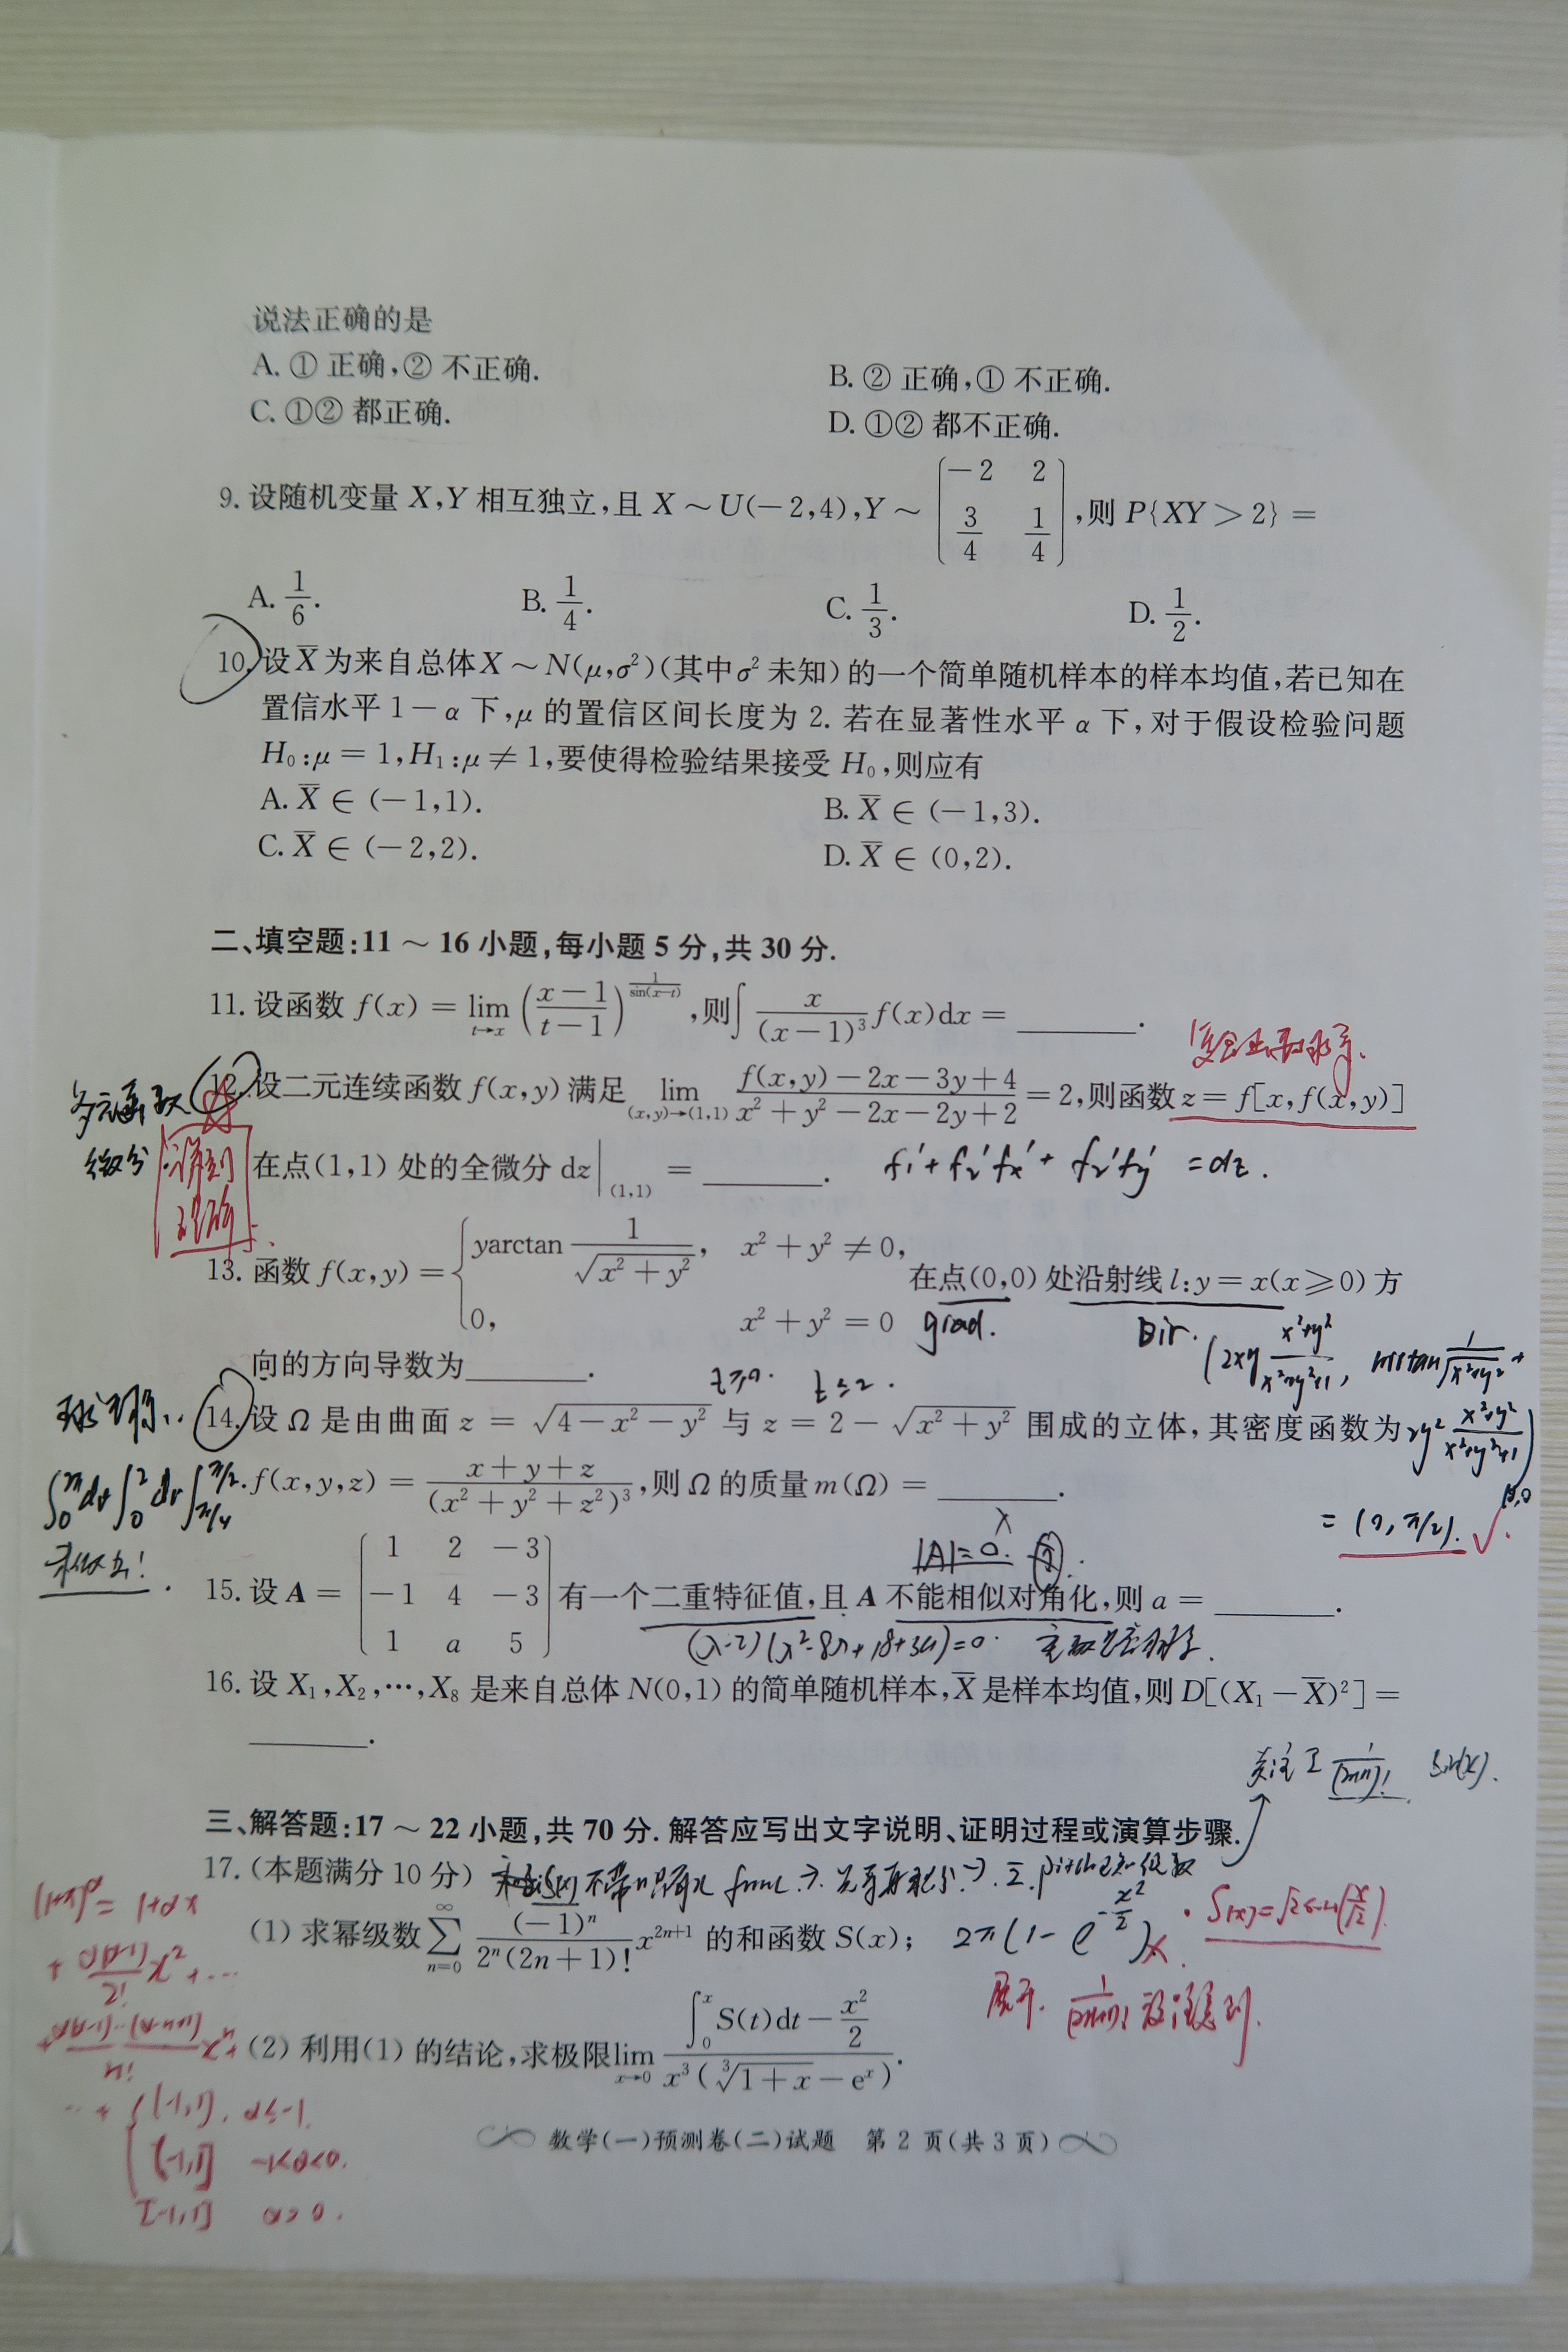 说法正确的是
A. ① 正确,② 不正确.
B. ② 正确,① 不正确.
C. ①② 都正确.
D. ①② 都不正确.
9. 设随机变量 X,Y 相互独立,且 X ~ U(-2,4),Y ~ \begin{pmatrix} -2 & 2 \\ \frac{3}{4} & \frac{1}{4} \end{pmatrix},则 P{XY > 2} =
A. \frac{1}{6}.
B. \frac{1}{4}.
C. \frac{1}{3}.
D. \frac{1}{2}.
10. 设 \overline{X} 为来自总体 X ~ N(μ,σ²)(其中 σ² 未知)的一个简单随机样本的样本均值,若已知在
置信水平 1-α 下,μ 的置信区间长度为 2. 若在显著性水平 α 下,对于假设检验问题
H₀:μ = 1,H₁:μ ≠ 1,要使得检验结果接受 H₀,则应有
A. \overline{X} ∈ (-1,1).
B. \overline{X} ∈ (-1,3).
C. \overline{X} ∈ (-2,2).
D. \overline{X} ∈ (0,2).
二、填空题:11 ~ 16 小题,每小题 5 分,共 30 分.
11. 设函数 f(x) = \lim_{t→x} (\frac{x-1}{t-1})^{\frac{1}{\sin(x-t)}},则 ∫ \frac{x}{(x-1)^3} f(x)dx = ______.
12. 设二元连续函数 f(x,y) 满足 \lim_{(x,y)→(1,1)} \frac{f(x,y)-2x-3y+4}{x²+y²-2x-2y+2} = 2,则函数 z = f[x,f(x,y)]
多元函数
微分
在点(1,1) 处的全微分 dz|_{(1,1)} = ______.
f₁'+f₂'fx'+f₂'fy' =dz.
13. 函数 f(x,y) = \begin{cases} y\arctan\frac{1}{\sqrt{x²+y²}}, & x²+y² ≠ 0, \\ 0, & x²+y² = 0 \end{cases} 在点(0,0) 处沿射线 l:y = x(x ≥ 0) 方
grad.
Dir.
向的方向导数为______.
z≥0.
z≤2.
= (0, π/2). ✓
14. 设 Ω 是由曲面 z = \sqrt{4-x²-y²} 与 z = 2-\sqrt{x²+y²} 围成的立体,其密度函数为
f(x,y,z) = \frac{x+y+z}{(x²+y²+z²)³},则 Ω 的质量 m(Ω) = ______.
|A|=0.
15. 设 A = \begin{pmatrix} 1 & 2 & -3 \\ -1 & 4 & -3 \\ 1 & a & 5 \end{pmatrix} 有一个二重特征值,且 A 不能相似对角化,则 a = ______.
(λ-2)(λ²-8λ+18+3a)=0.
16. 设 X₁,X₂,⋯,X₈ 是来自总体 N(0,1) 的简单随机样本,\overline{X} 是样本均值,则 D[(X₁-\overline{X})²] =
______.
三、解答题:17 ~ 22 小题,共 70 分. 解答应写出文字说明、证明过程或演算步骤.
17. (本题满分 10 分)
(1) 求幂级数 \sum_{n=0}^{∞} \frac{(-1)^n}{2^n(2n+1)!} x^{2n+1} 的和函数 S(x);
2π(1-e^{-\frac{x²}{2}})
(2) 利用(1) 的结论,求极限 \lim_{x→0} \frac{∫_0^x S(t)dt-\frac{x²}{2}}{x³(\sqrt[3]{1+x}-e^x)}.
(1+x)^α = 1+αx
+ \frac{α(α-1)}{2!} x² + ...
(-1,1), α≤-1.
(-1,1] -1<α<0.
[-1,1] α>0.
数学(一)预测卷(二)试题 第 2 页(共 3 页)